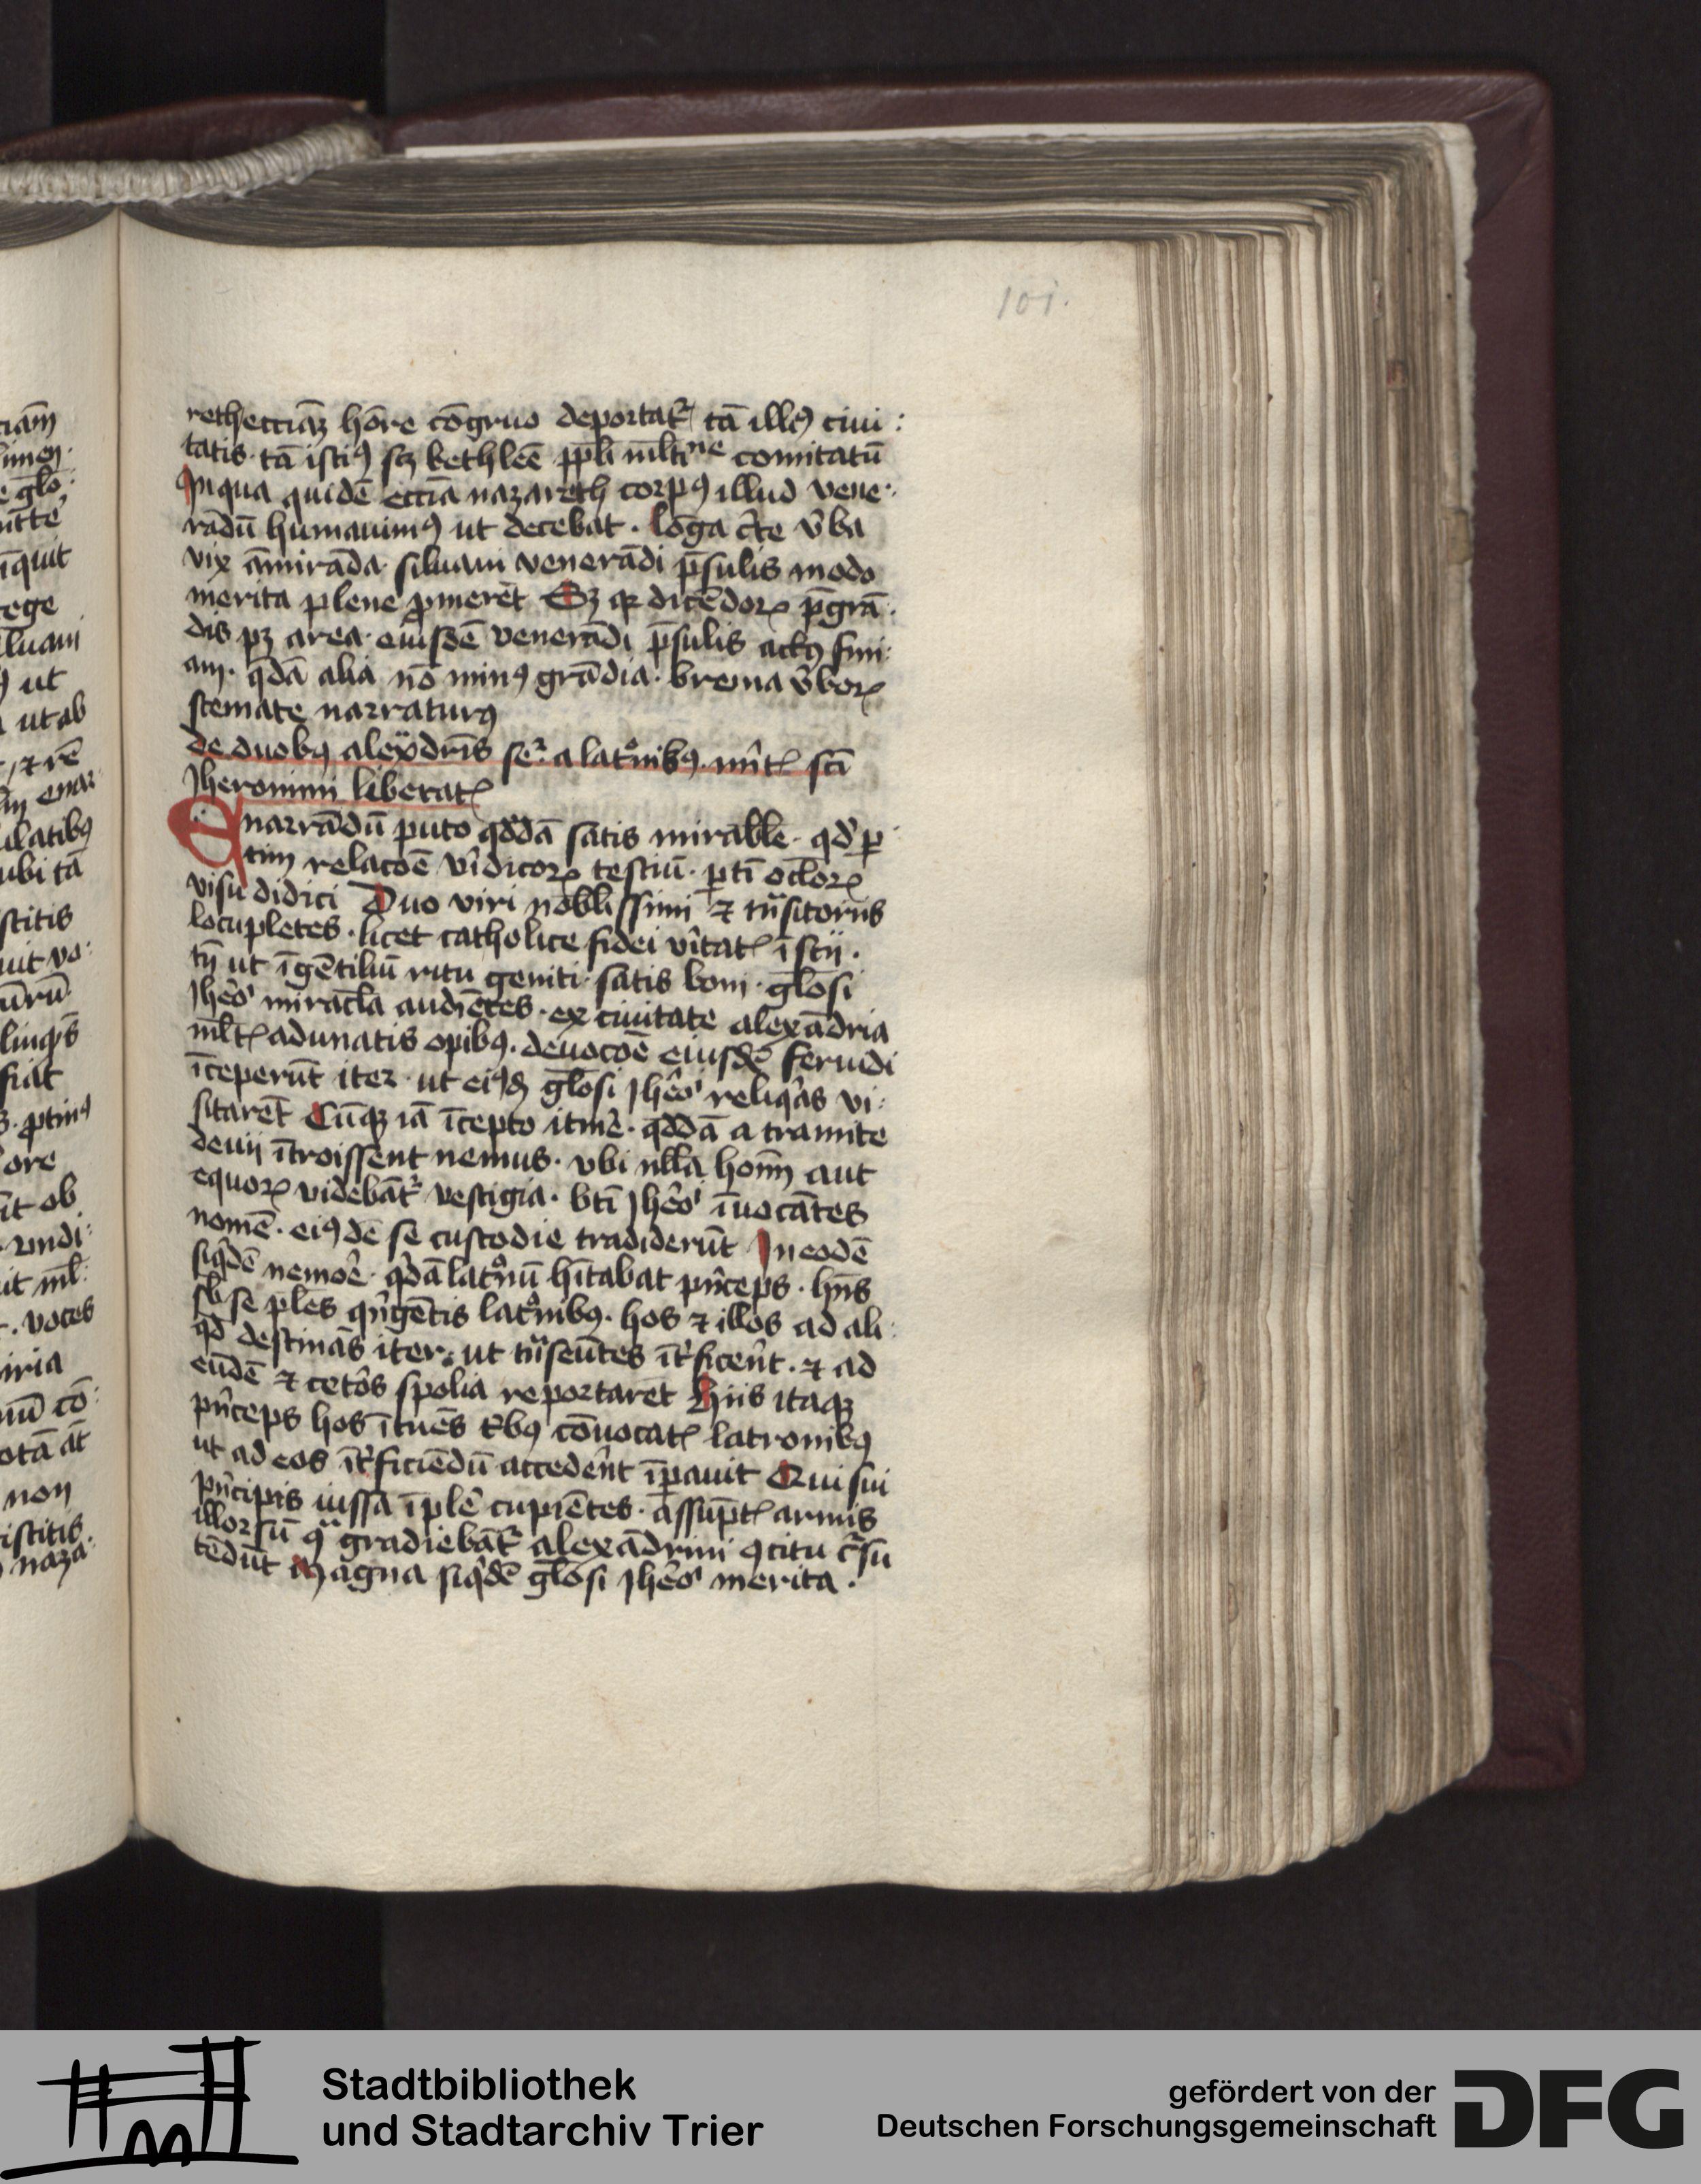 101.
reth ecciaʒ hōre cōgruo deportat᷑ tā illiꝰ ciui
tatis tā istiꝰ scʒ bethleē ppl̄i ml̄tine comitatū
In qua quidē eccīa nazareth corpꝰ illud vene
rādū humauimꝰ ut decebat . lōga c̄te v̄ba
vix āmirāda siluani venerādi p̄sulis modo
merita plene ꝓmerēt Sʒ qʒ dicēdoꝝ p̄grā
dis pʒ area eiusdē venerādi p̄sulis actꝰ fini
am . q̄dā alia nō minꝰ grādia breuia v̄boꝝ
stemate narraturꝰ
de duobꝰ alexādris a latͦnibꝰ sc̄i
Jheronimi liberat
Enarrādū puto qͦddā satis mirab̄le qd̕ ꝑ
tim relacōe v̄idicoꝝ testiū ꝑtī ocl̄oꝝ
visu didici Duo viri nob̄lissimi ⁊ tn̄sitoriis
locupletes . licet catholice fidei v̄itat̄ īscij .
tn̄ ut īgētiliū ritu geniti satis boni gl̄osi
Jhēoⁱ miracl̄a audiētes . ex ciuitate alexādria
ml̄t̄ adunatis opibꝰ . deuocōe eiusdē feruidi
īceperūt iter ut eiꝰd̄ gl̄osi Jhēoⁱ reliq̄as vi
sitarēt Cūqʒ iā īcepto itīnē . qͦddā a tramite
deuij ītroissent nemus . vbi nll̄a hoīm aut
equoꝝ videbāt᷑ vestigia . btī Jhēoⁱ īuocātes
nomē . eiꝰdē se custodie tradiderūt In eodē
siqͥdē nemoē . qͥdā latͦnū hītabat pͥnceps . hn̄s
sb̄ se pl̄es qͥngētis latͦnibꝰ . hos ⁊ illos ad ali
qd̕ destinās iter . ut tn̄seūtes īt̄ficērt . ⁊ ad
eūdē ⁊ cetōs spolia reportarēt Hiis itaqʒ
pͥnceps hos ītuēs t̄bꝰ cōuocat̄ latronibꝰ
ut ad eos īt̄ficiēdū accedērt īꝑauit Qui sui
pͥncipis iussa īplē cupiētes . assūpt̄ armis
illorsū qͣ gradiebāt᷑ alexādrini ꝯcitu c᷑sū
tēdūt Magna siqͥdē gl̄osi Jhēoⁱ merita .
Stadtbibliothek
und Stadtarchiv Trier
gefördert von der
Deutschen Forschungsgemeinschaft
DFG